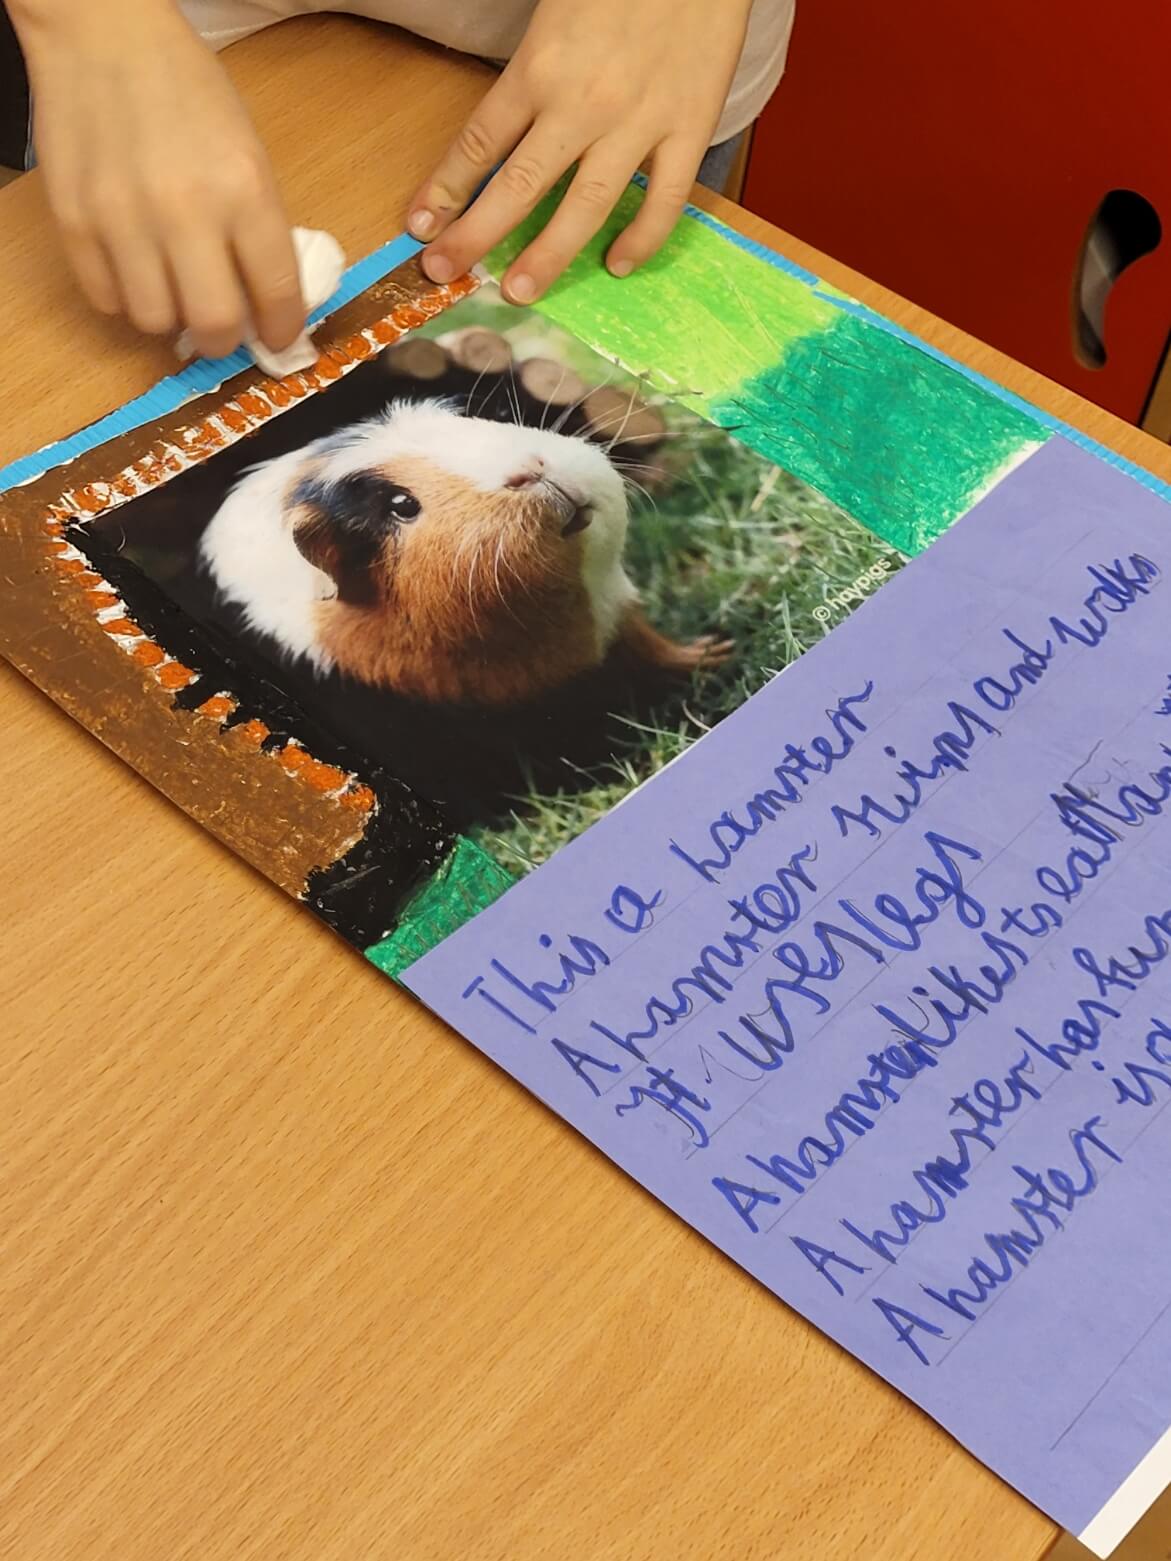 © haypigs
This is a hamster
A hamster swims and walks
It uses legs
A hamster likes to eat
A hamster has
A hamster is